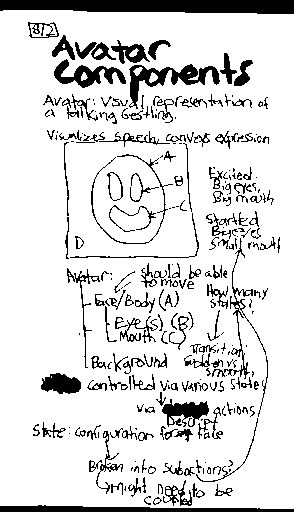 8/2
Avatar
Components
Avatar: Visual representation of
a talking Gestling.
Visualizes speech, conveys expression
A
B
C
D
Excited:
Big eyes,
Big mouth
Startled
Big eyes
Small mouth
Avatar:
should be able
to move
Face/Body (A)
Eye(s) (B)
Mouth (C)
Background
How many
states?
Transition:
Sudden vs.
smooth
controlled via various states
via actions
Descript
State: configuration for face
Broken into subactions?
might need to be
coupled